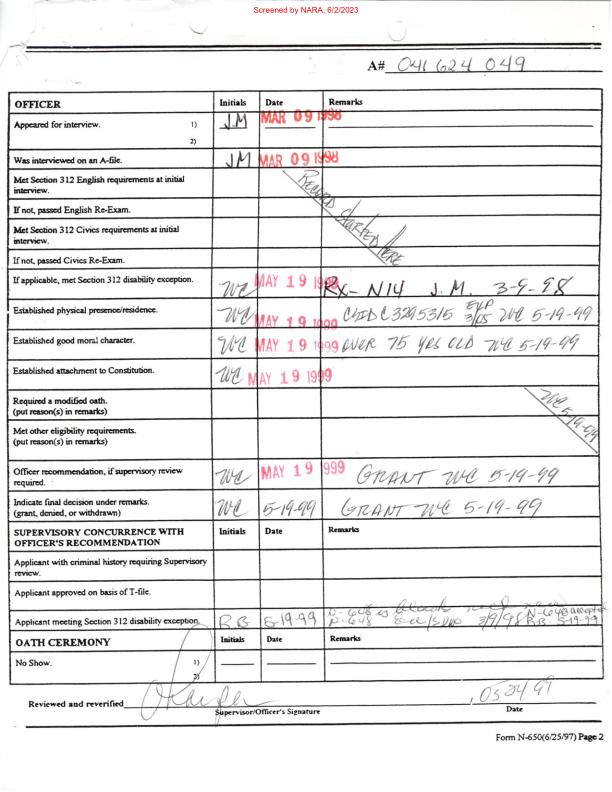 Screened by NARA, 6/2/2023
A# 041 624 049
OFFICER Initials Date Remarks
Appeared for interview. 1) JM MAR 09 1998
2)
Was interviewed on an A-file. JM MAR 09 1998
Met Section 312 English requirements at initial
interview.
RECORD STARTED HERE
If not, passed English Re-Exam.
Met Section 312 Civics requirements at initial
interview.
If not, passed Civics Re-Exam.
If applicable, met Section 312 disability exception. WC MAY 19 1999 RX- N14 J.M. 3-9-98
Established physical presence/residence. WC MAY 19 1999 C3295315 EXP WC 5-19-99
Established good moral character. WC MAY 19 1999 OVER 75 YRS OLD WC 5-19-99
Established attachment to Constitution. WC MAY 19 1999
Required a modified oath.
(put reason(s) in remarks)
WC 5-19-99
Met other eligibility requirements.
(put reason(s) in remarks)
Officer recommendation, if supervisory review
required. WC MAY 19 1999 GRANT WC 5-19-99
Indicate final decision under remarks.
(grant, denied, or withdrawn) WC 5-19-99 GRANT WC 5-19-99
SUPERVISORY CONCURRENCE WITH
OFFICER'S RECOMMENDATION Initials Date Remarks
Applicant with criminal history requiring Supervisory
review.
Applicant approved on basis of T-file.
N-648 is N-648 accepted
Applicant meeting Section 312 disability exception. RB 5-19-99 N-648 3/9/98 RB 5-19-99
OATH CEREMONY Initials Date Remarks
No Show. 1)
2)
Reviewed and reverified 05 24 99
Supervisor/Officer's Signature Date
Form N-650(6/25/97) Page 2